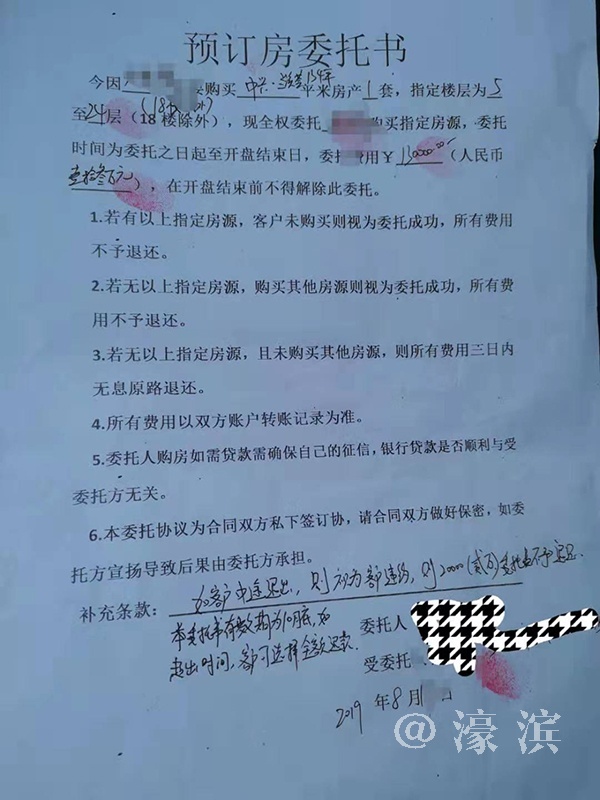 预订房委托书
今因 购买 中 平米房产 1 套，指定楼层为 5
至 24 层（18 楼除外），现全权委托 购买指定房源，委托
时间为委托之日起至开盘结束日，委托费用￥ （人民币
壹拾叁万元），在开盘结束前不得解除此委托。
1.若有以上指定房源，客户未购买则视为委托成功，所有费用
不予退还。
2.若无以上指定房源，购买其他房源则视为委托成功，所有费
用不予退还。
3.若无以上指定房源，且未购买其他房源，则所有费用三日内
无息原路退还。
4.所有费用以双方账户转账记录为准。
5.委托人购房如需贷款需确保自己的征信，银行贷款是否顺利与受
委托方无关。
6.本委托协议为合同双方私下签订协，请合同双方做好保密，如委
托方宣扬导致后果由委托方承担。
补充条款： 如客户中途退出，则视为客户违约，则 （贰万） 不予退还.
本委托书有效期为10月底，如 委托人
超出时间，客户可选择全额退款. 受委托
2019 年 8 月
@濠滨